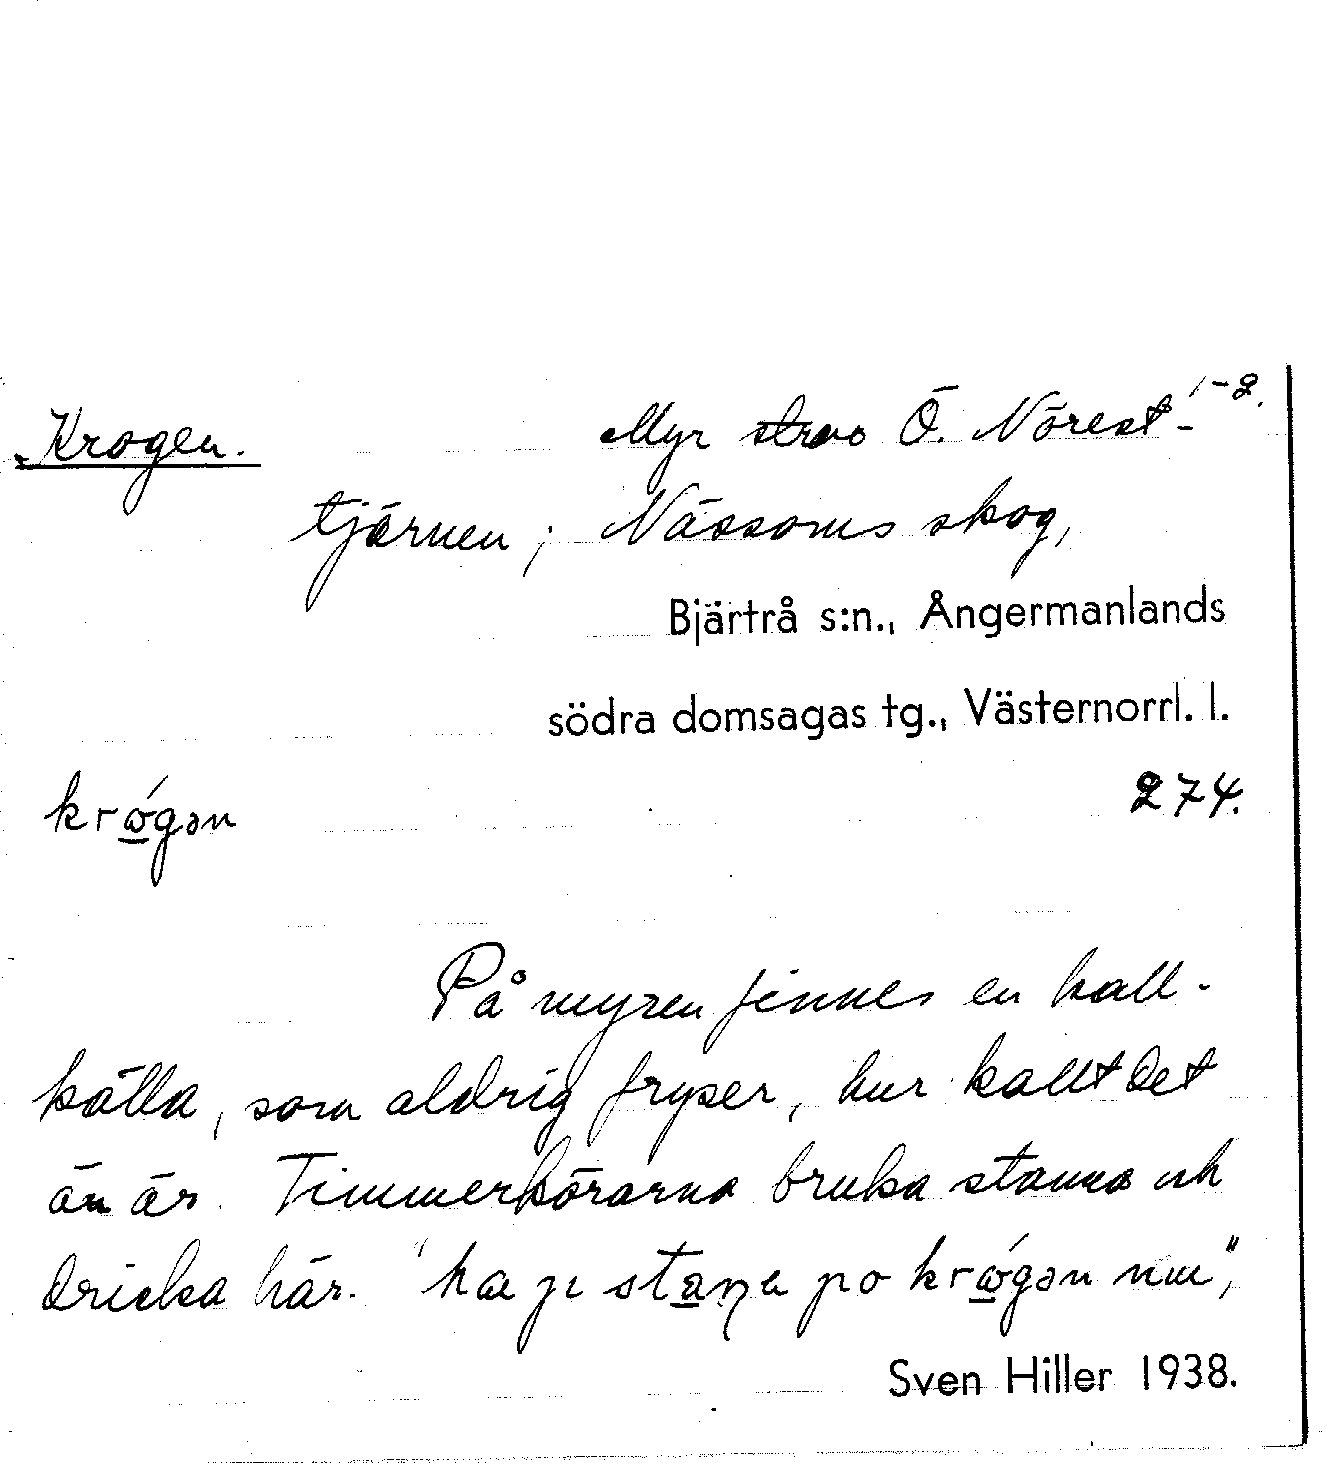 1-2.
Krogen. Myr strax Ö. Nörest-
tjärnen; Nässoms skog,
Bjärtrå s:n., Ångermanlands
södra domsagas tg., Västernorrl. l.
274.
På myren finnes en kall-
källa, som aldrig fryser, hur kallt det
än är. Timmerkörarna bruka stanna och
dricka här.
Sven Hiller 1938.